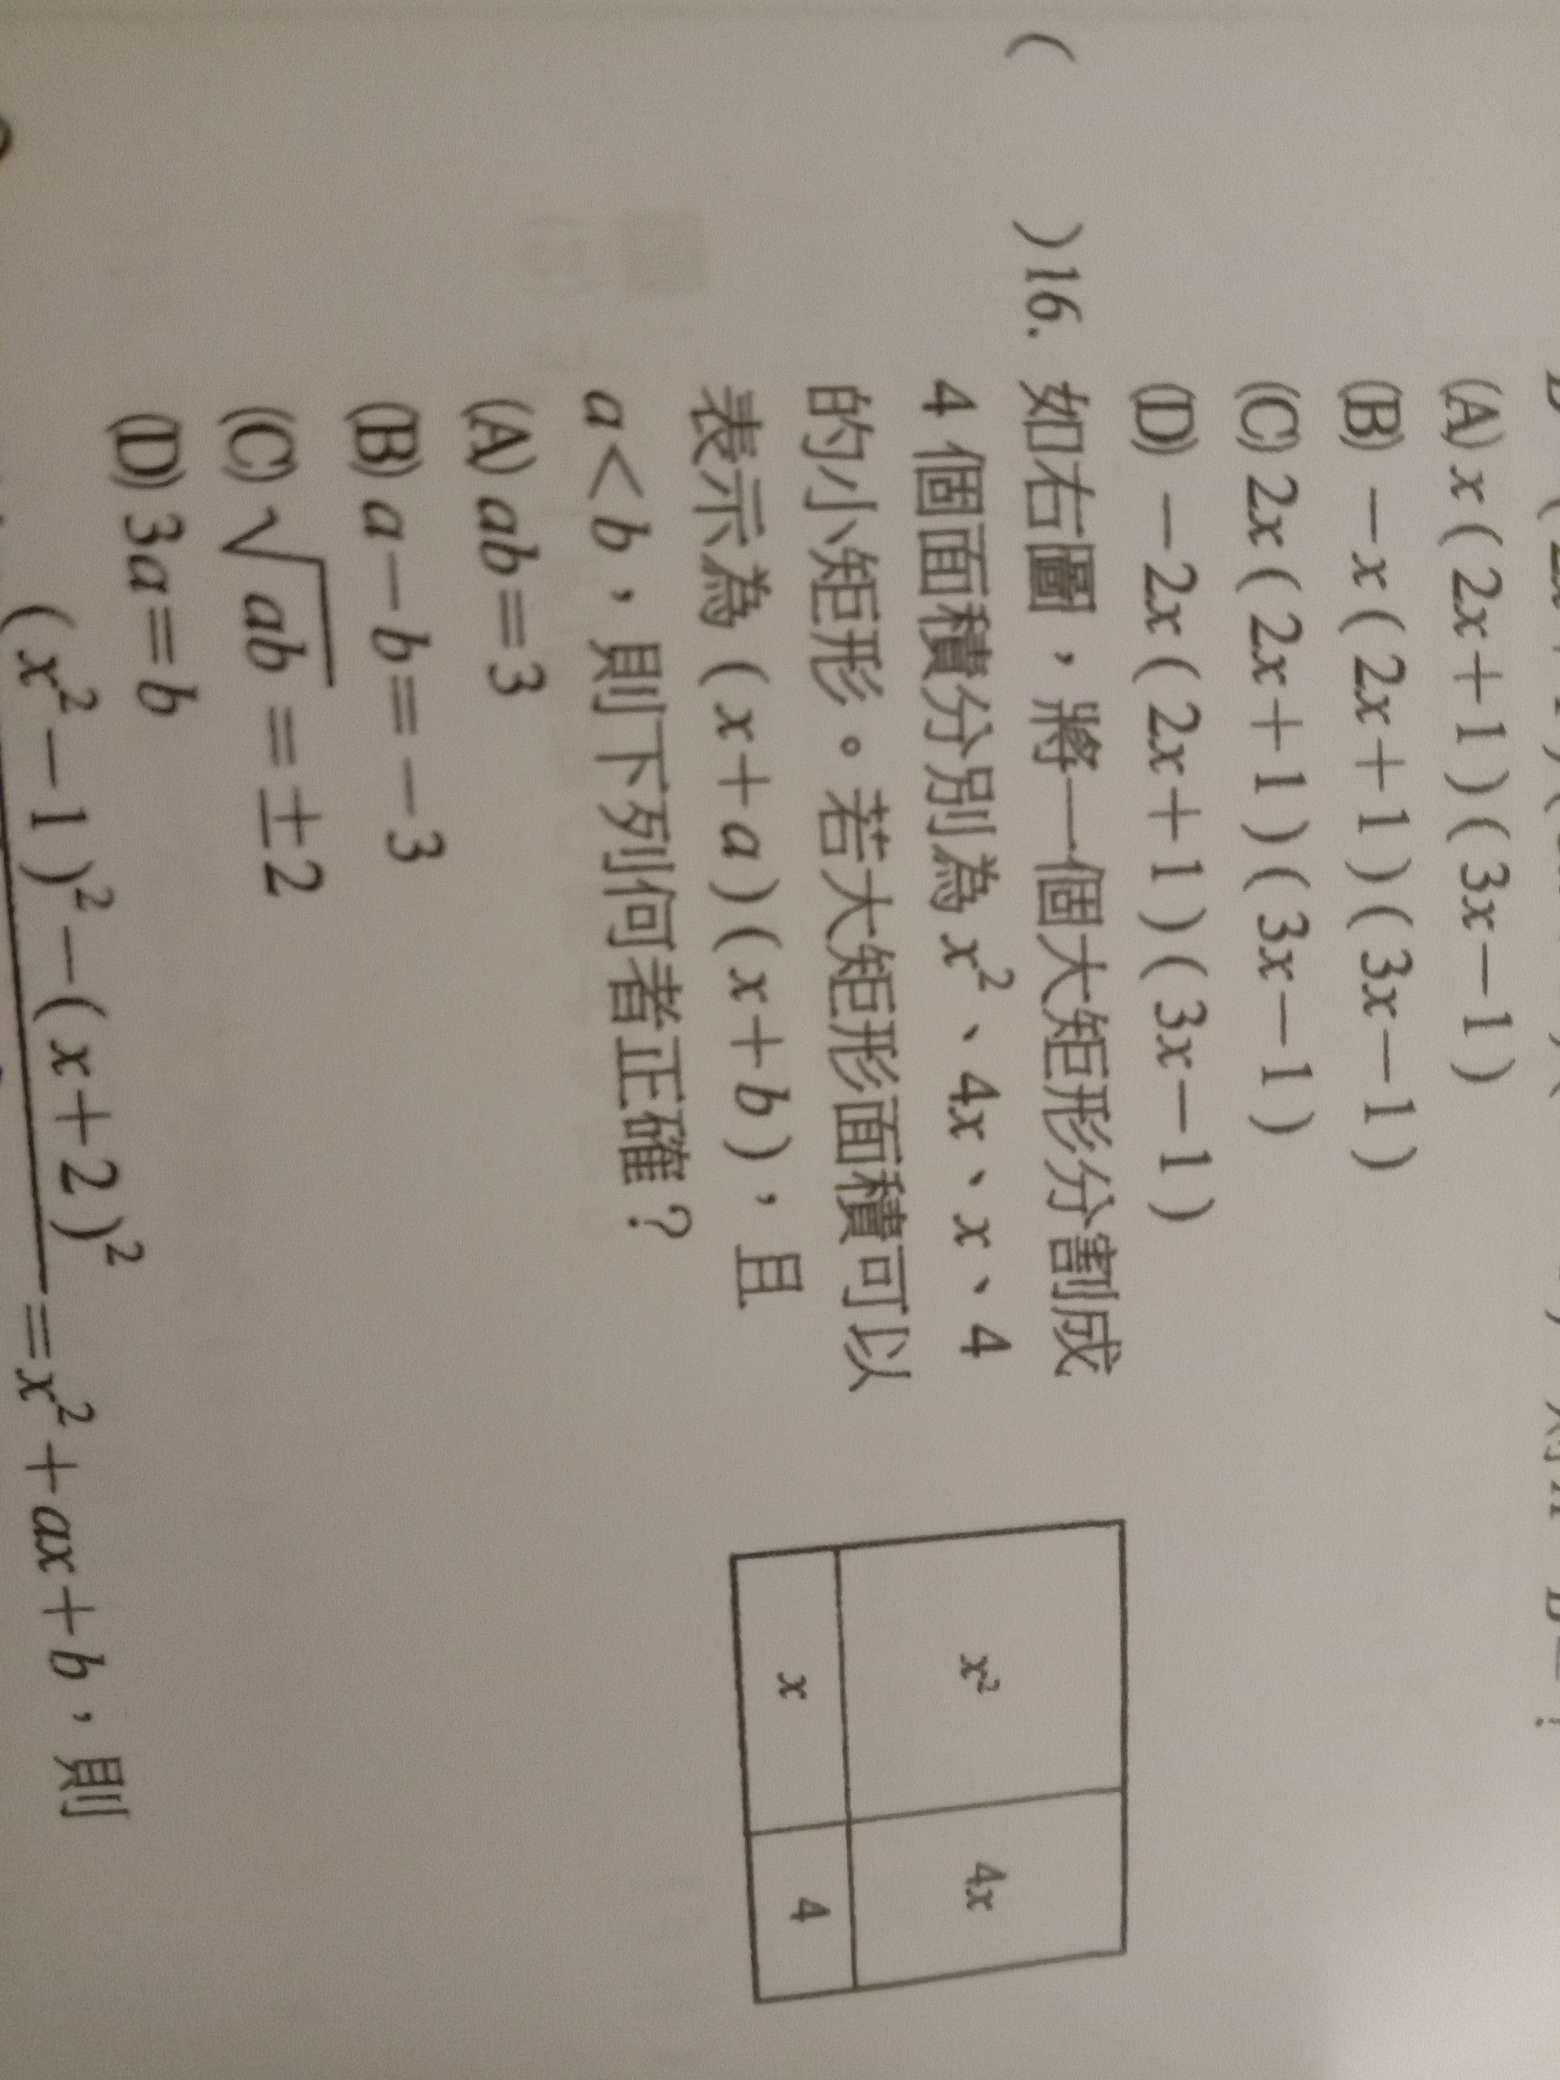 (A) x(2x+1)(3x−1)
(B) −x(2x+1)(3x−1)
(C) 2x(2x+1)(3x−1)
(D) −2x(2x+1)(3x−1)
( )16. 如右圖，將一個大矩形分割成
4 個面積分別為 x²、4x、x、4
的小矩形。若大矩形面積可以
表示為 (x+a)(x+b)，且
a<b，則下列何者正確？
(A) ab=3
(B) a−b=−3
(C) √ab=±2
(D) 3a=b
x² 4x
x 4
(x²−1)²−(x+2)²
=x²+ax+b，則